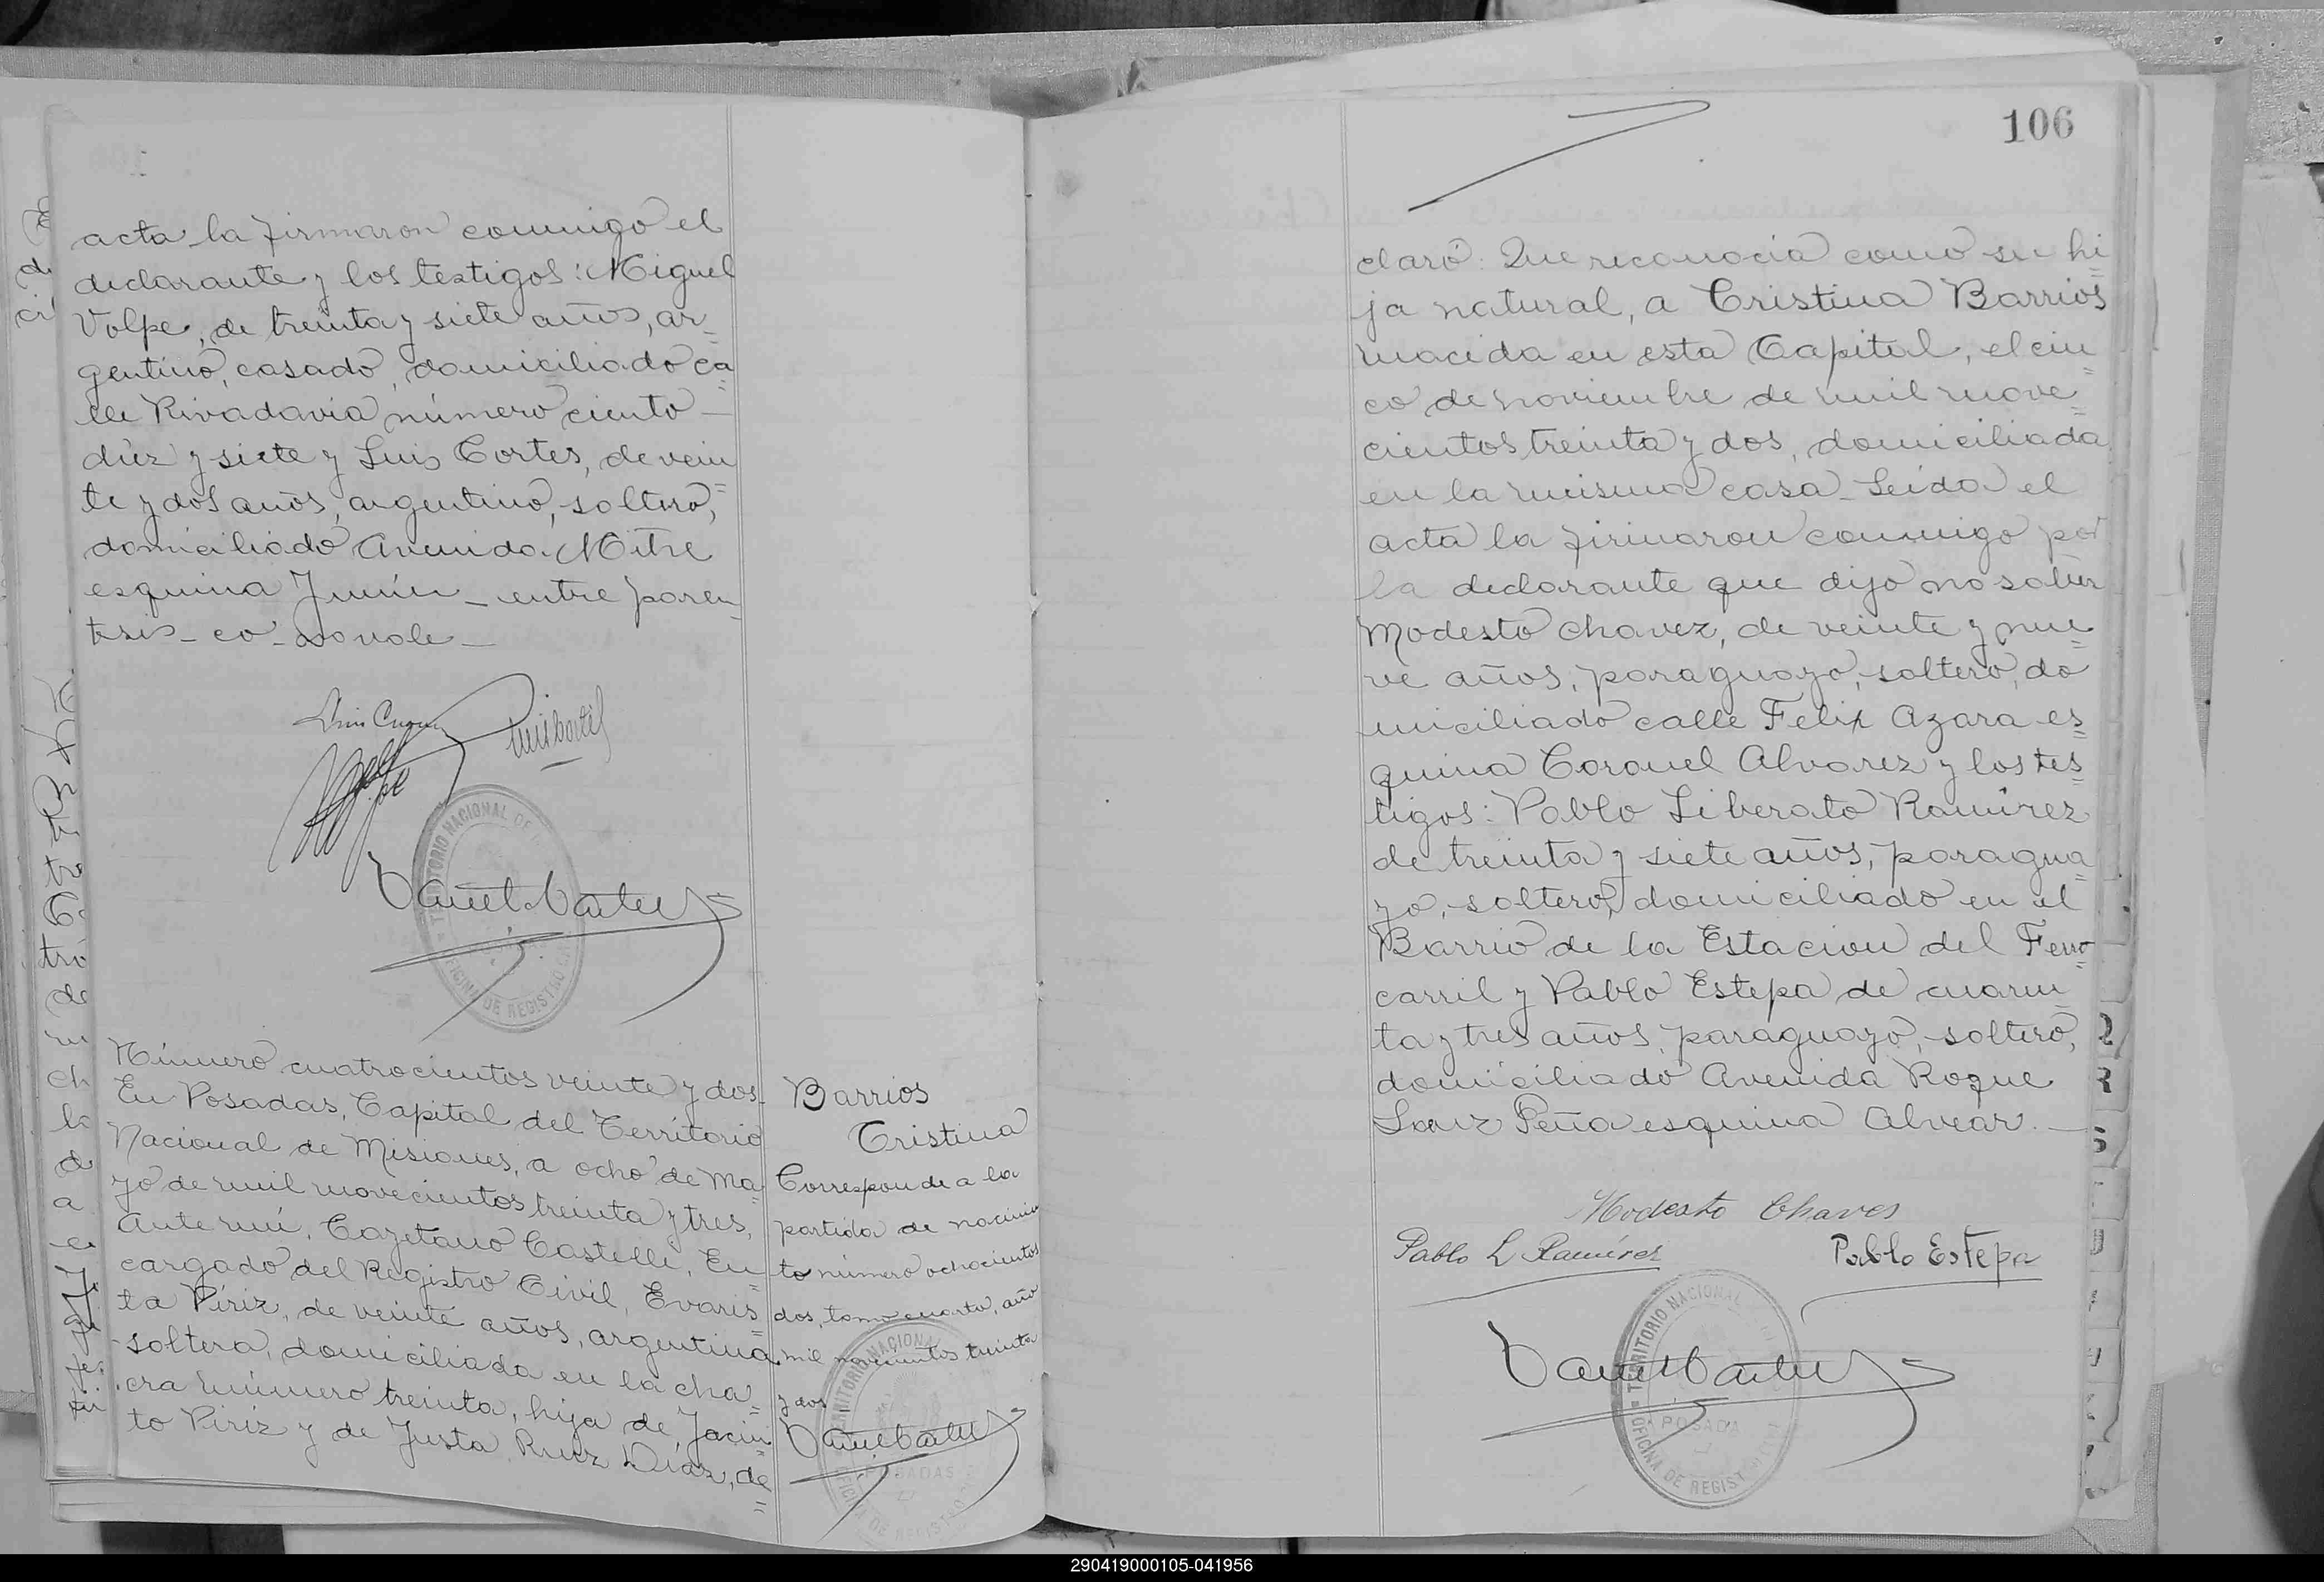 acta la firmaron conmigo el
declarante y los testigos: Miguel
Volpe, de treinta y siete años, ar-
gentino, casado, domiciliado ca=
lle Rivadavia número ciento
diez y siete y Luis Cortes, de vein=
te y dos años, argentino, soltero,
domiciliado Avenida Mitre
esquina Junín - entre paren=
tesis - co - no vale -
Número cuatrocientos veinte y dos
En Posadas, Capital del Territorio
Nacional de Misiones, a ocho de Ma=
yo de mil novecientos treinta y tres,
Ante mí, Cayetano Castelli, En
cargado del Registro Civil, Evaris=
ta Piriz, de veinte años, argentina
soltera, domiciliada en la cha=
cra número treinta, hija de Jacin=
to Piriz y de Justa Ruiz Diaz, de=
Barrios
Cristina
Corresponde a la
partida de nacimien
to número ochocientos
dos, tomo cuarto, año
mil novecientos treinta
y dos
TERRITORIO NACIONAL
POSADAS
106
claró: Que reconocía como su hi=
ja natural, a Cristina Barrios
nacida en esta Capital, el cin=
co de noviembre de mil nove=
cientos treinta y dos, domiciliada
en la misma casa - Leída el
acta la firmaron conmigo por
la declarante que dijo no saber
Modesto Chavez, de veinte y nue=
ve años, paraguayo, soltero, do
miciliado calle Felix Azara es=
quina Coronel Alvarez y los tes=
tigos: Pablo Liberato Ramírez
de treinta y siete años, paragua=
yo, soltero, domiciliado en el
Barrio de la Estacion del Ferro=
carril y Pablo Estepa de cuaren=
ta y tres años, paraguayo, soltero,
domiciliado Avenida Roque
Saenz Peña esquina Alvear. -
Modesto Chaves
Pablo L Ramírez Pablo Estepa
TERRITORIO NACIONAL
POSADAS
OFICINA DE REGISTRO
290419000105-041956